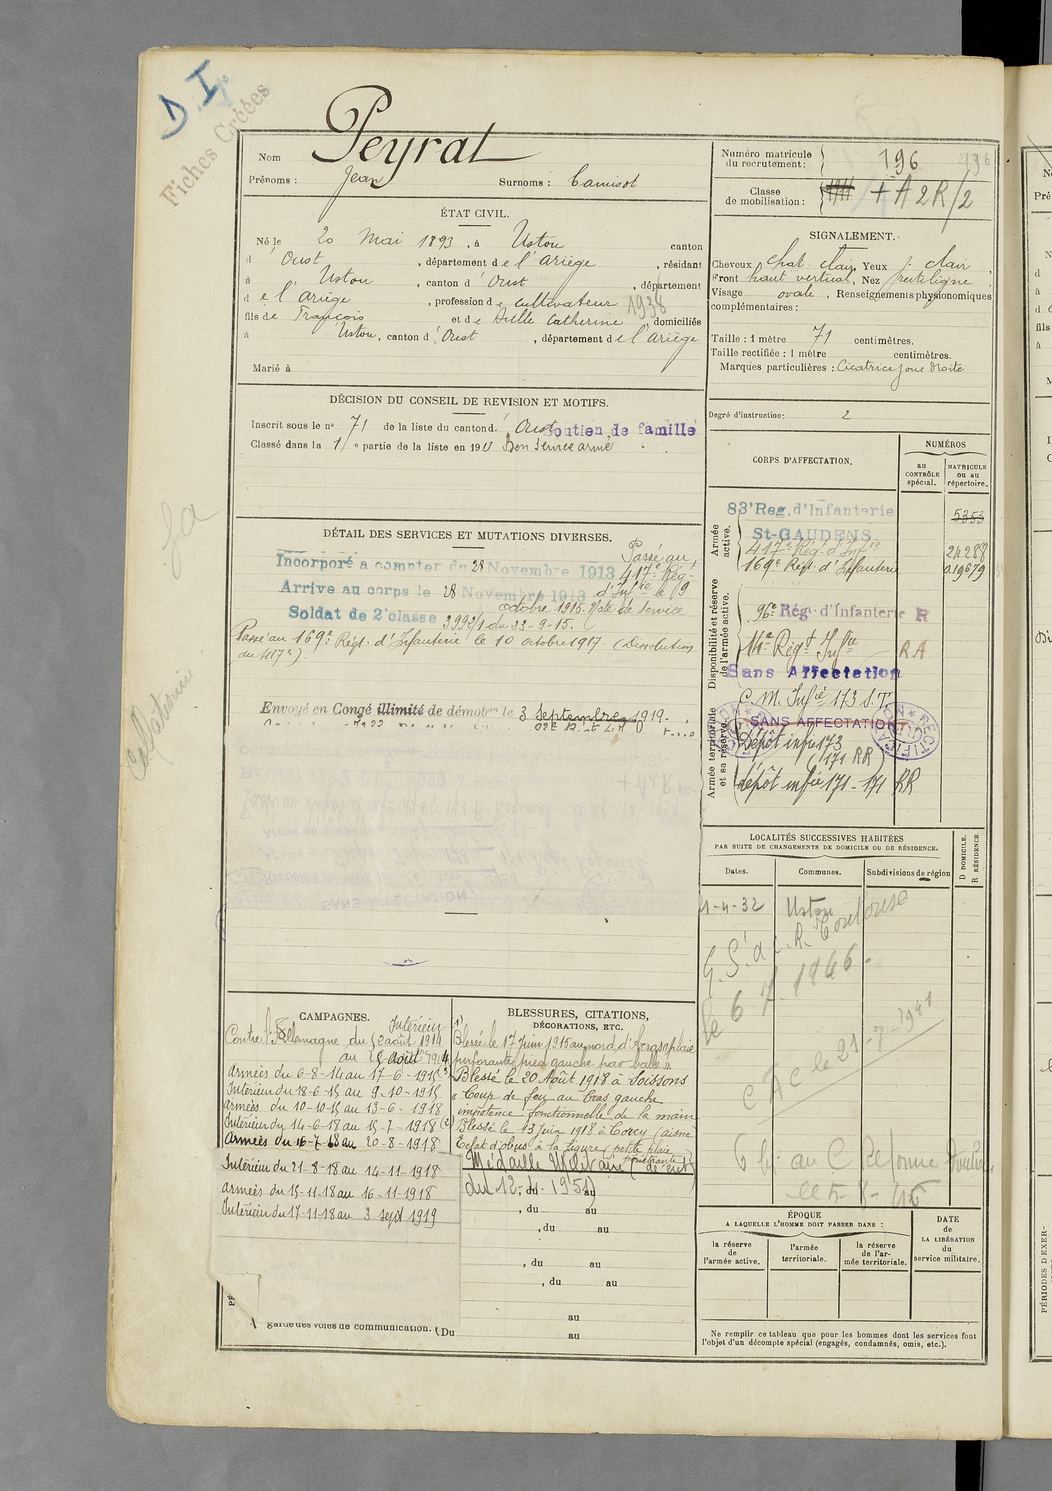 D I
Fiches Créées
Nom Peyrat
Prénoms : Jean Surnoms : Camisot
ÉTAT CIVIL.
Né le 20 Mai 1893, à Ustou canton
d' Oust, département de l'Ariège, résidant
à Ustou, canton d' Oust, département
de l'Ariège, profession de cultivateur 1938
fils de François et de Catherine, domiciliés
à Ustou, canton d' Oust, département de l'Ariège
Marié à
DÉCISION DU CONSEIL DE REVISION ET MOTIFS.
Inscrit sous le n° 71 de la liste du canton d' Oust Soutien de famille
Classé dans la 1re partie de la liste en 1913 Bon service armé
DÉTAIL DES SERVICES ET MUTATIONS DIVERSES.
Incorporé à compter du 28 Novembre 1913 Passé au
Arrivé au corps le 28 Novembre 1913 417e Rég-t
Soldat de 2e classe d'Infie le 19
octobre 1915. Note de service
3992/1 du 23-9-15.
Passé au 169e Régt. d'Infanterie le 10 octobre 1917. (Dissolution
du 417e).
Envoyé en Congé illimité de démobon le 3 Septembre 1919.
SANS AFFECTATION
CAMPAGNES.
Intérieur
Contre l'Allemagne du 2 août 1914
au 5 août 1914
Armées du 6-8-14 au 17-6-1915
Intérieur du 18-6-15 au 9-10-1915
Armées du 10-10-15 au 13-6-1918
Intérieur du 14-6-18 au 15-7-1918
Armées du 16-7-18 au 20-8-1918
Intérieur du 21-8-18 au 14-11-1918
Armées du 15-11-18 au 16-11-1918
Intérieur du 17-11-18 au 3 sept 1919
garde des voies de communication. (Du
BLESSURES, CITATIONS,
DÉCORATIONS, ETC.
1) Blessé le 17 juin 1915 au nord d'Arras plaie
perforante pied gauche par balle
Blessé le 20 Août 1918 à Soissons
"Coup de feu au bras gauche
impotence fonctionnelle de la main
(2) Blessé le 13 juin 1918 à Corcy (Aisne
Eclat d'obus à la figure (petite plaie
pénétrante)
Médaille Militaire (décret
du 12. 1951)
, du au
, du au
, du au
, du au
au
au
Numéro matricule
du recrutement : 196 196
Classe
de mobilisation : 1911 + A 2R/2
SIGNALEMENT.
Cheveux chat. clair, Yeux clair,
Front haut vertical, Nez rectiligne,
Visage ovale, Renseignements physionomiques
complémentaires :
Taille : 1 mètre 71 centimètres.
Taille rectifiée : 1 mètre centimètres.
Marques particulières : Cicatrice joue droite
Degré d'instruction : 2
CORPS D'AFFECTATION.
NUMÉROS
au
CONTRÔLE
spécial.
MATRICULE
ou au
répertoire.
Armée
active.
83e Reg. d'Infanterie 5353
St-GAUDENS
417e Rég. d'Infie 24288
169e Régt. d'Infanterie 019679
Disponibilité et réserve
de l'armée active.
96e Régt d'Infanterie R
14e Régt Infie RA
Sans Affectation
Armée territoriale
et sa réserve.
C. M. Infie 173 S.T.
SANS AFFECTATION
RECTIFICATION
Dépôt infie 173
(171 RR)
dépôt infie 171 - 171 RR
LOCALITÉS SUCCESSIVES HABITÉES
PAR SUITE DE CHANGEMENTS DE DOMICILE OU DE RÉSIDENCE.
D DOMICILE.
R RÉSIDENCE.
Dates. Communes. Subdivisions de région
1-4-32 Ustou
G.S. à C.R. Toulouse
le 6 7. 1946 -
C A C le 21-7-1941
au C Réforme
ÉPOQUE
A LAQUELLE L'HOMME DOIT PASSER DANS :
la réserve
de
l'armée active.
l'armée
territoriale.
la réserve
de l'ar-
mée territoriale.
DATE
de
LA LIBÉRATION
du
service militaire.
Ne remplir ce tableau que pour les hommes dont les services font
l'objet d'un décompte spécial (engagés, condamnés, omis, etc.).
PÉRIODES D'EXER-